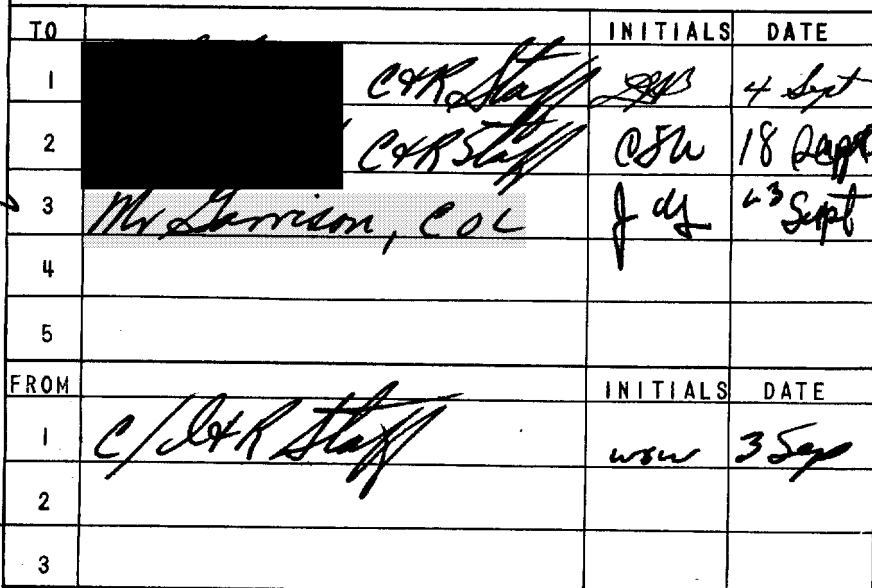 TO INITIALS DATE
1 C&R Staff 4 Sept
2 C&R Staff CSW 18 Sept
3 Mr Garrison, COL 23 Sept
4
5
FROM INITIALS DATE
1 C/I&R Staff wsw 3 Sep
2
3